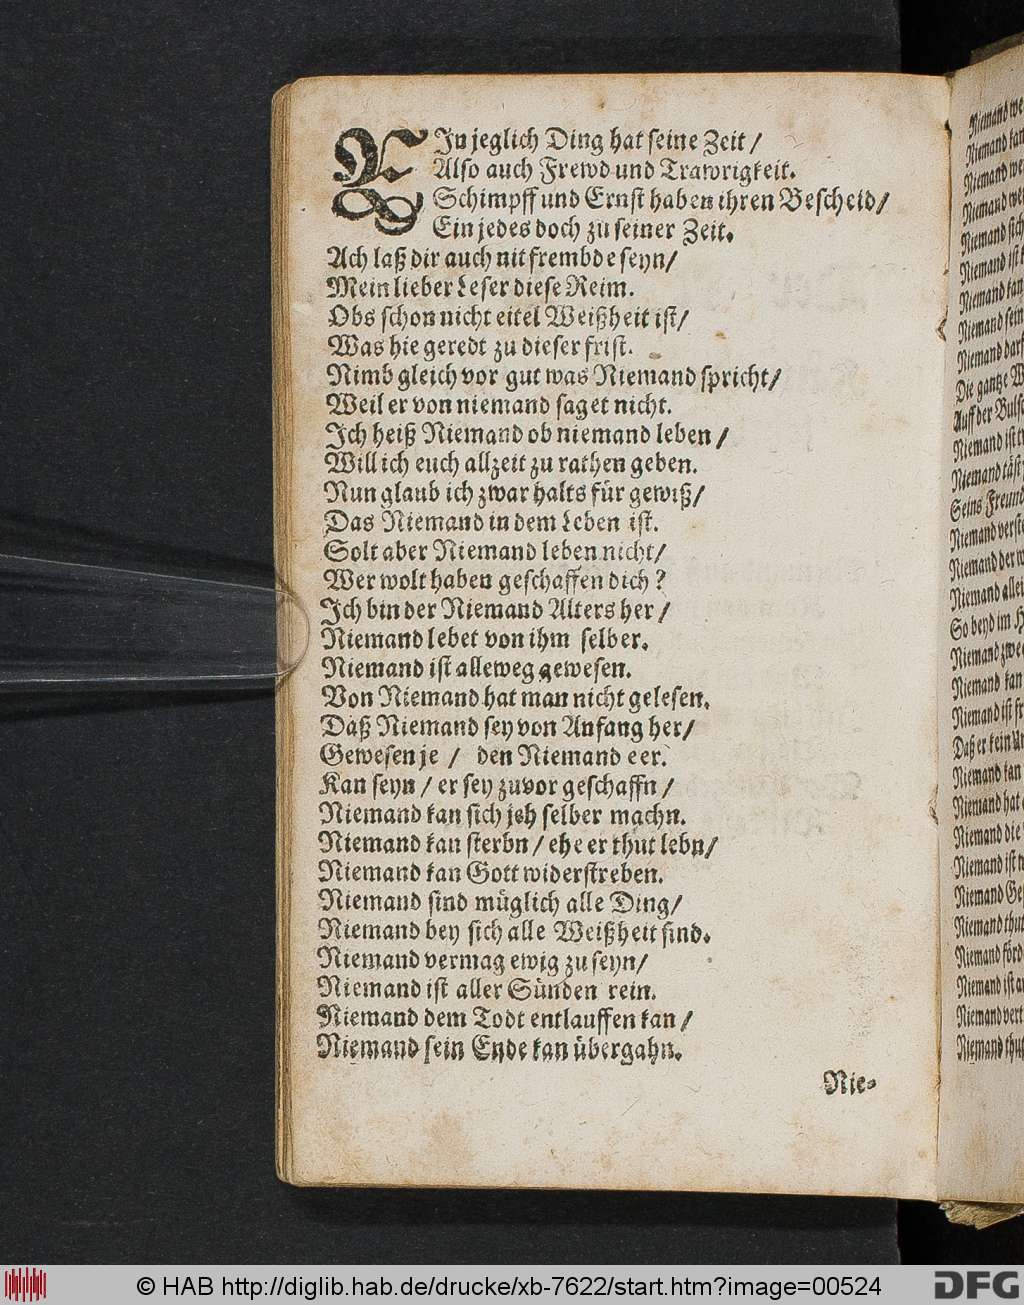 EIn jeglich Ding hat seine Zeit /
Also auch Frewd und Trawrigkeit.
Schimpff und Ernst haben ihren Bescheid /
Ein jedes doch zu seiner Zeit.
Ach laß dir auch nit frembde seyn /
Mein lieber Leser diese Reim.
Obs schon nicht eitel Weißheit ist /
Was hie geredt zu dieser frist.
Nimb gleich vor gut was Niemand spricht /
Weil er von niemand saget nicht.
Ich heiß Niemand ob niemand leben /
Will ich euch allzeit zu rathen geben.
Nun glaub ich zwar halts für gewiß /
Das Niemand in dem Leben ist.
Solt aber Niemand leben nicht /
Wer wolt haben geschaffen dich ?
Ich bin der Niemand Alters her /
Niemand lebet von ihm selber.
Niemand ist alleweg gewesen.
Von Niemand hat man nicht gelesen.
Daß Niemand sey von Anfang her /
Gewesen je / den Niemand eer.
Kan seyn / er sey zuvor geschaffn /
Niemand kan sich jeh selber machn.
Niemand kan sterbn / ehe er thut lebn /
Niemand kan Gott widerstreben.
Niemand sind müglich alle Ding /
Niemand bey sich alle Weißheit sind.
Niemand vermag ewig zu seyn /
Niemand ist aller Sünden rein.
Niemand dem Todt entlauffen kan /
Niemand sein Ende kan übergahn.
Nie-
Niemand
Niemand kan
Niemand
Niemand
Niemand sich
Niemand ist
Niemand kan
Niemand sein
Niemand darf
Die gantze
Auff der
Niemand ist
Niemand
Seins
Niemand
Niemand der
Niemand
So beyd im
Niemand
Niemand kan
Niemand ist
Daß er kein
Niemand kan
Niemand hat
Niemand die
Niemand ist
Niemand
Niemand
Niemand
Niemand ist
Niemand
Niemand
© HAB http://diglib.hab.de/drucke/xb-7622/start.htm?image=00524
DFG